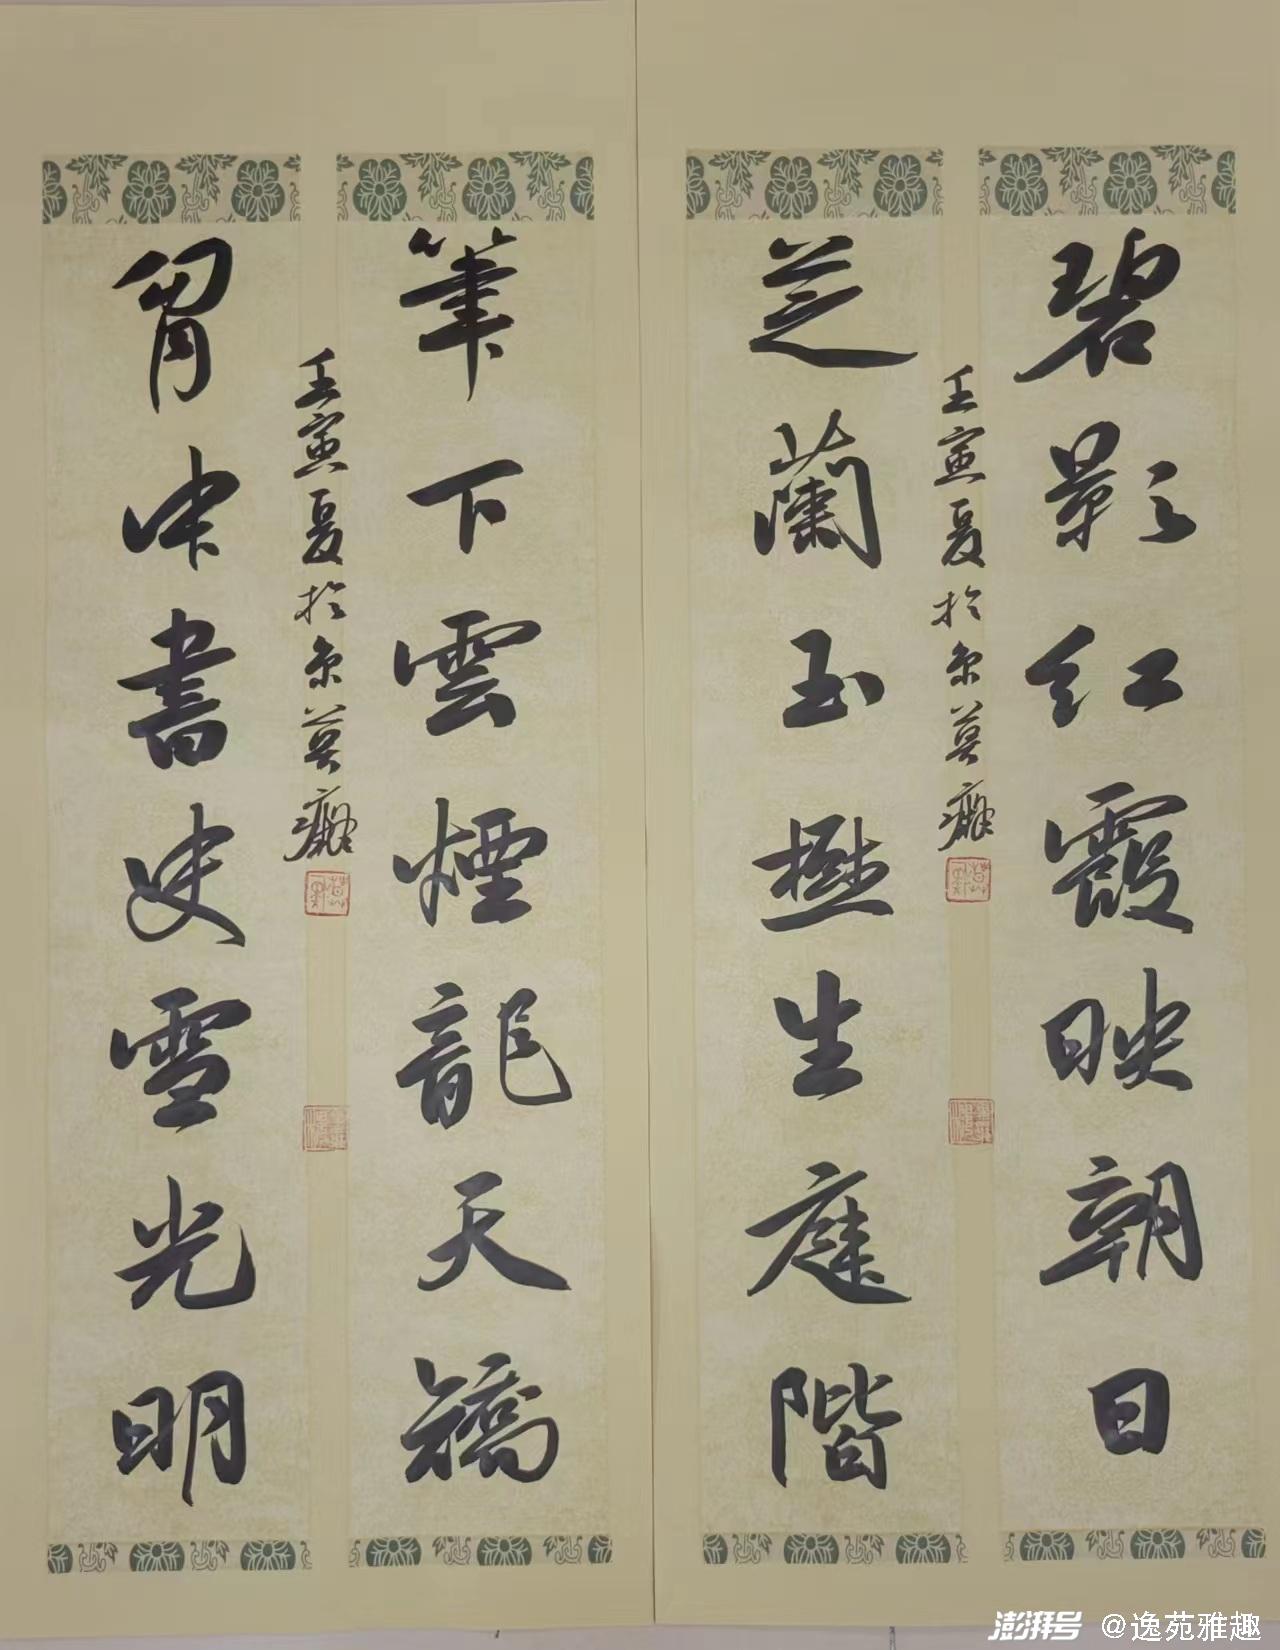 碧影紅霞映朝日
壬寅夏於京莫癡
芝蘭玉樹生庭階
筆下雲煙龍天矯
壬寅夏於京莫癡
胷中書史雪光明
澎湃号 @逸苑雅趣